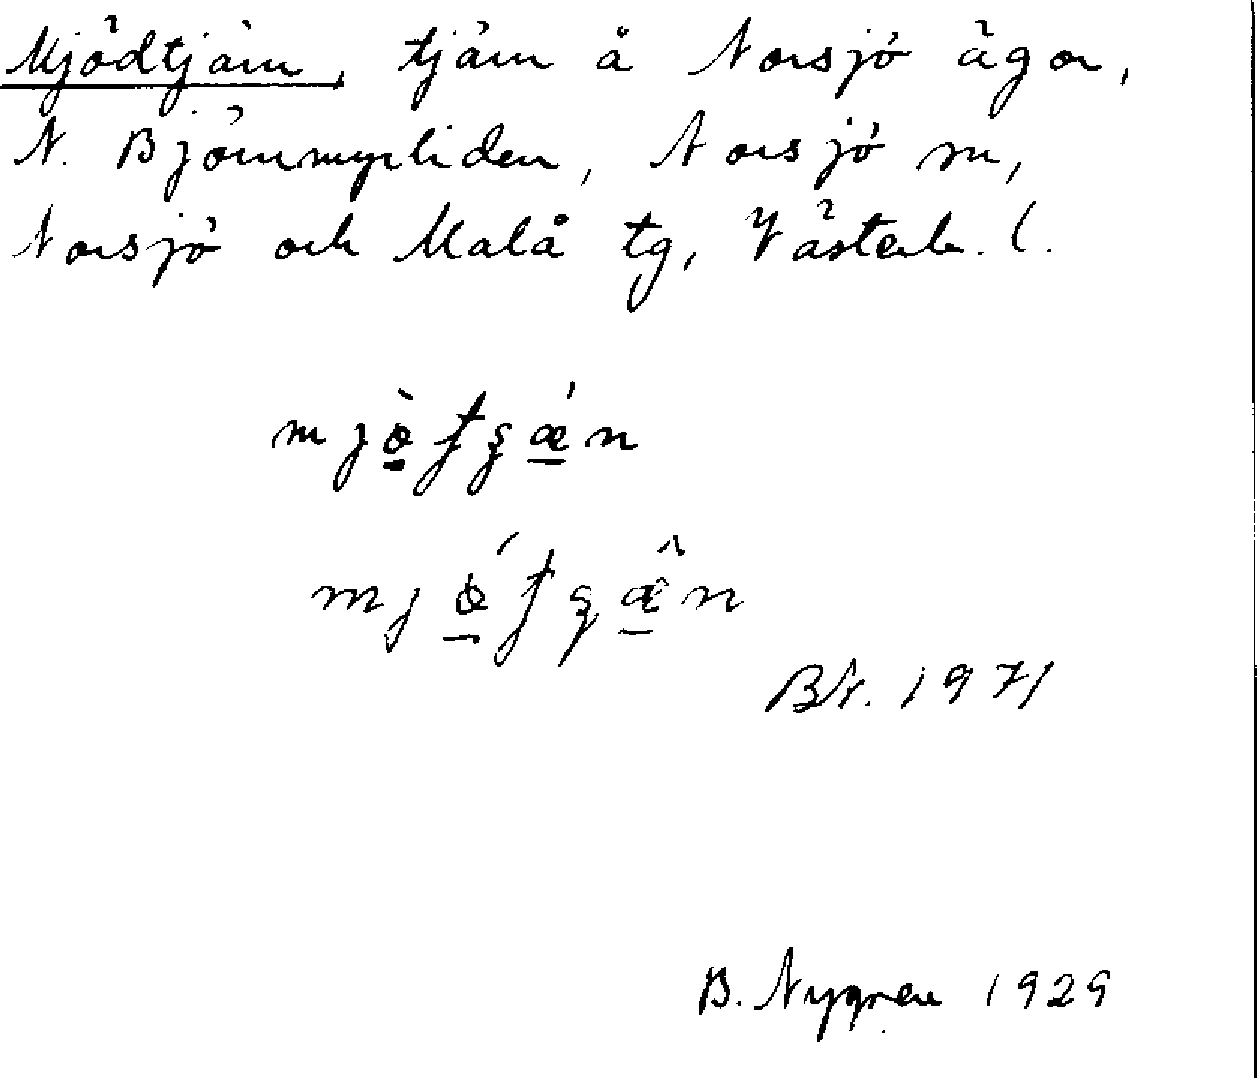 Mjödtjärn, tjärn å Norsjö ägor,
N. Björnmyrliden, Norsjö sn,
Norsjö och Malå tg, Västerb. l.
B.N. 1971
B. Nygren 1929